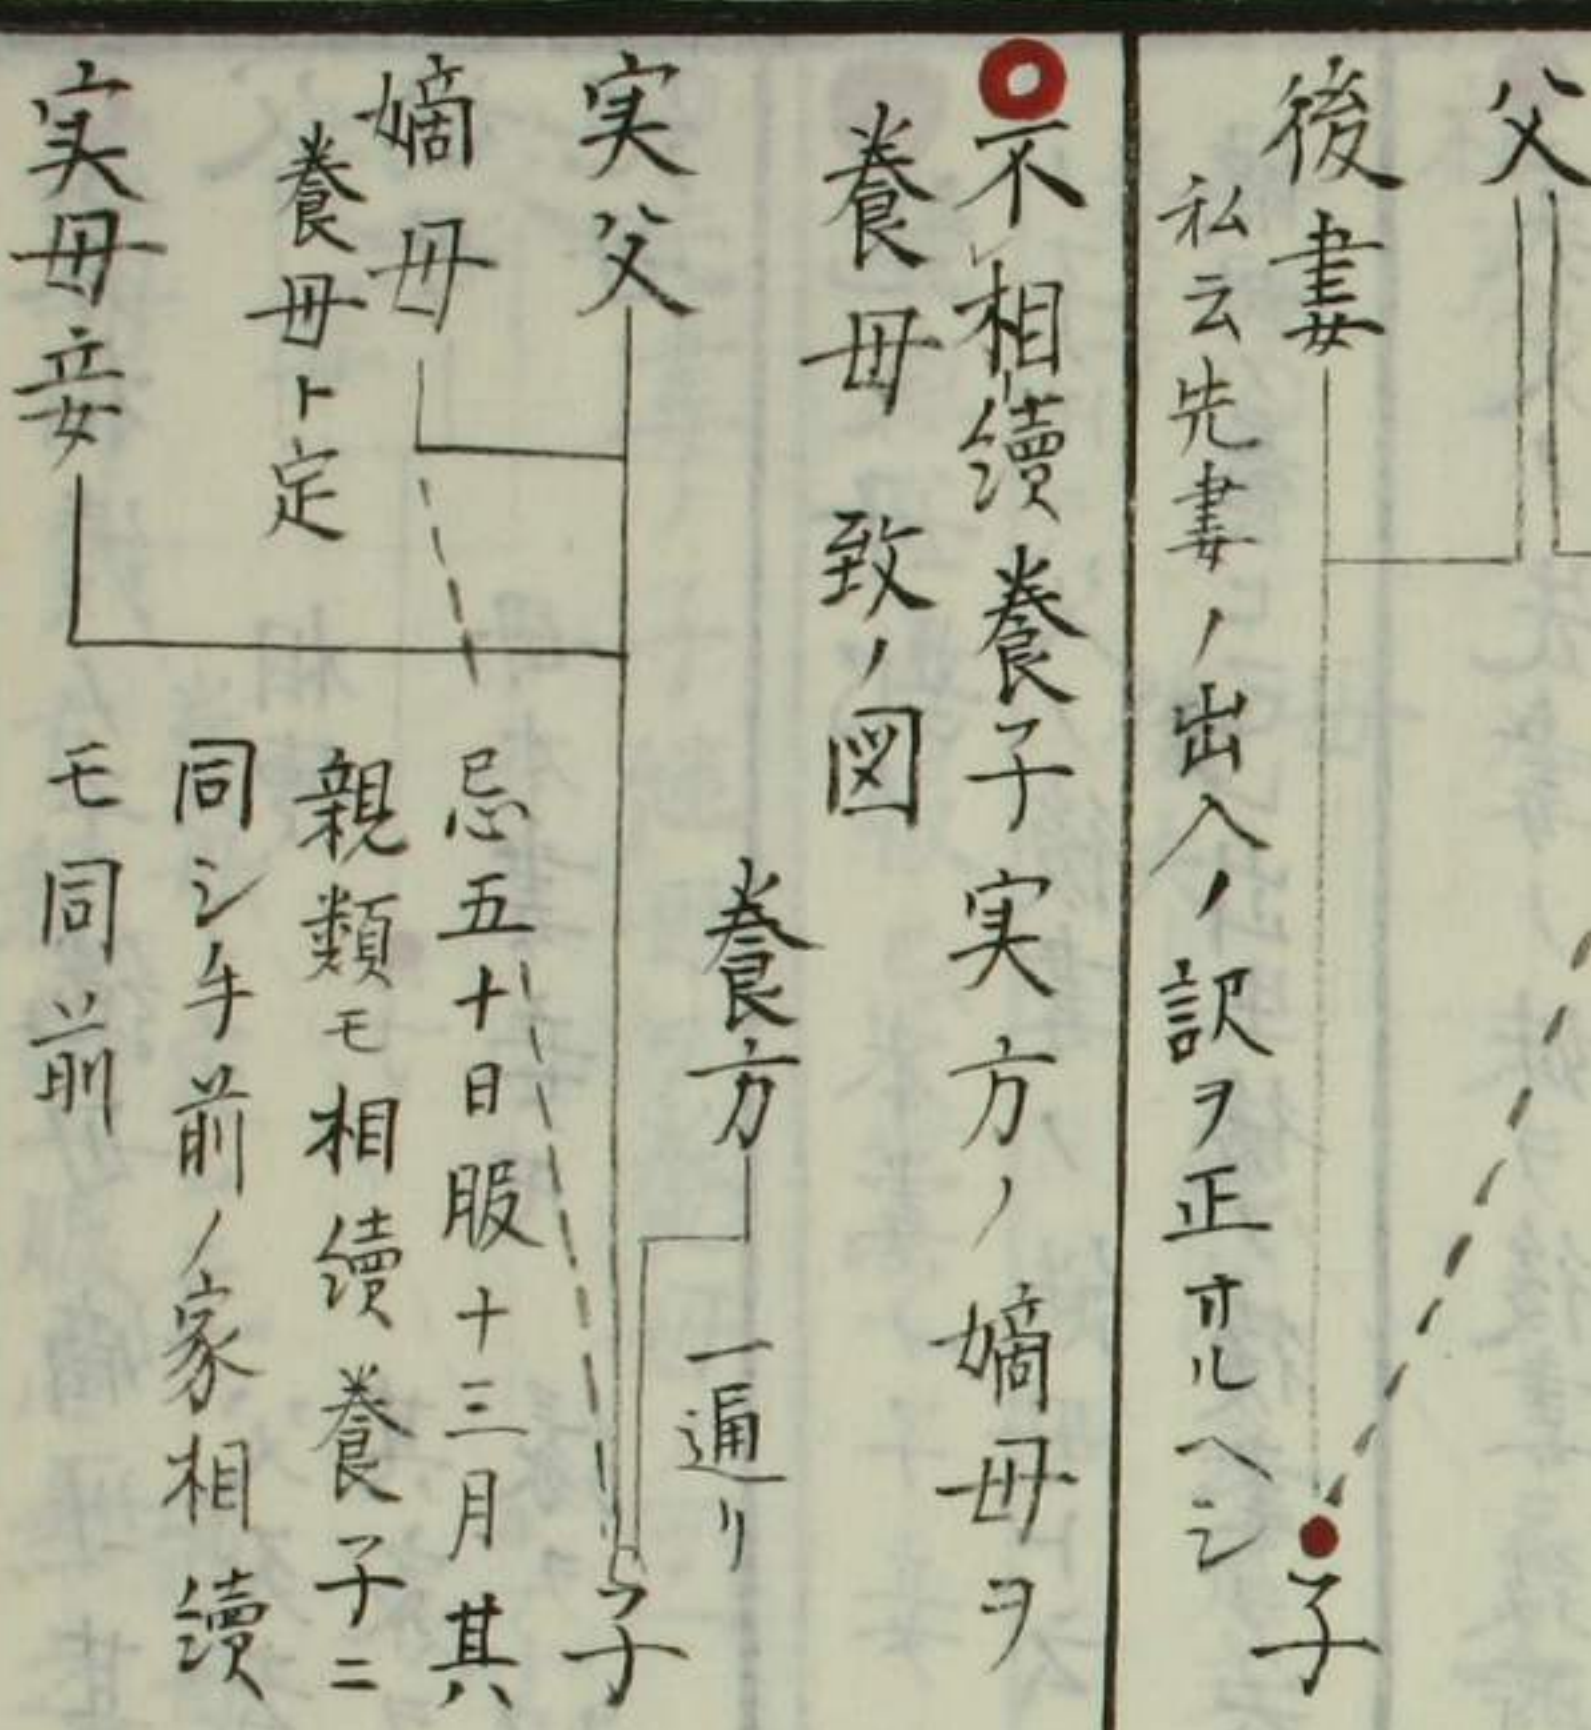 父
後妻
私云先妻ノ出入ノ訳ヲ正オルヘシ
子
不相續養子実方ノ嫡母ヲ
養母致ノ図
養方
一遍リ
実父
子
嫡母
養母ト定
忌五十日服十三月其
親類モ相續養子ニ
同シ手前ノ家相續
モ同前
実母妾